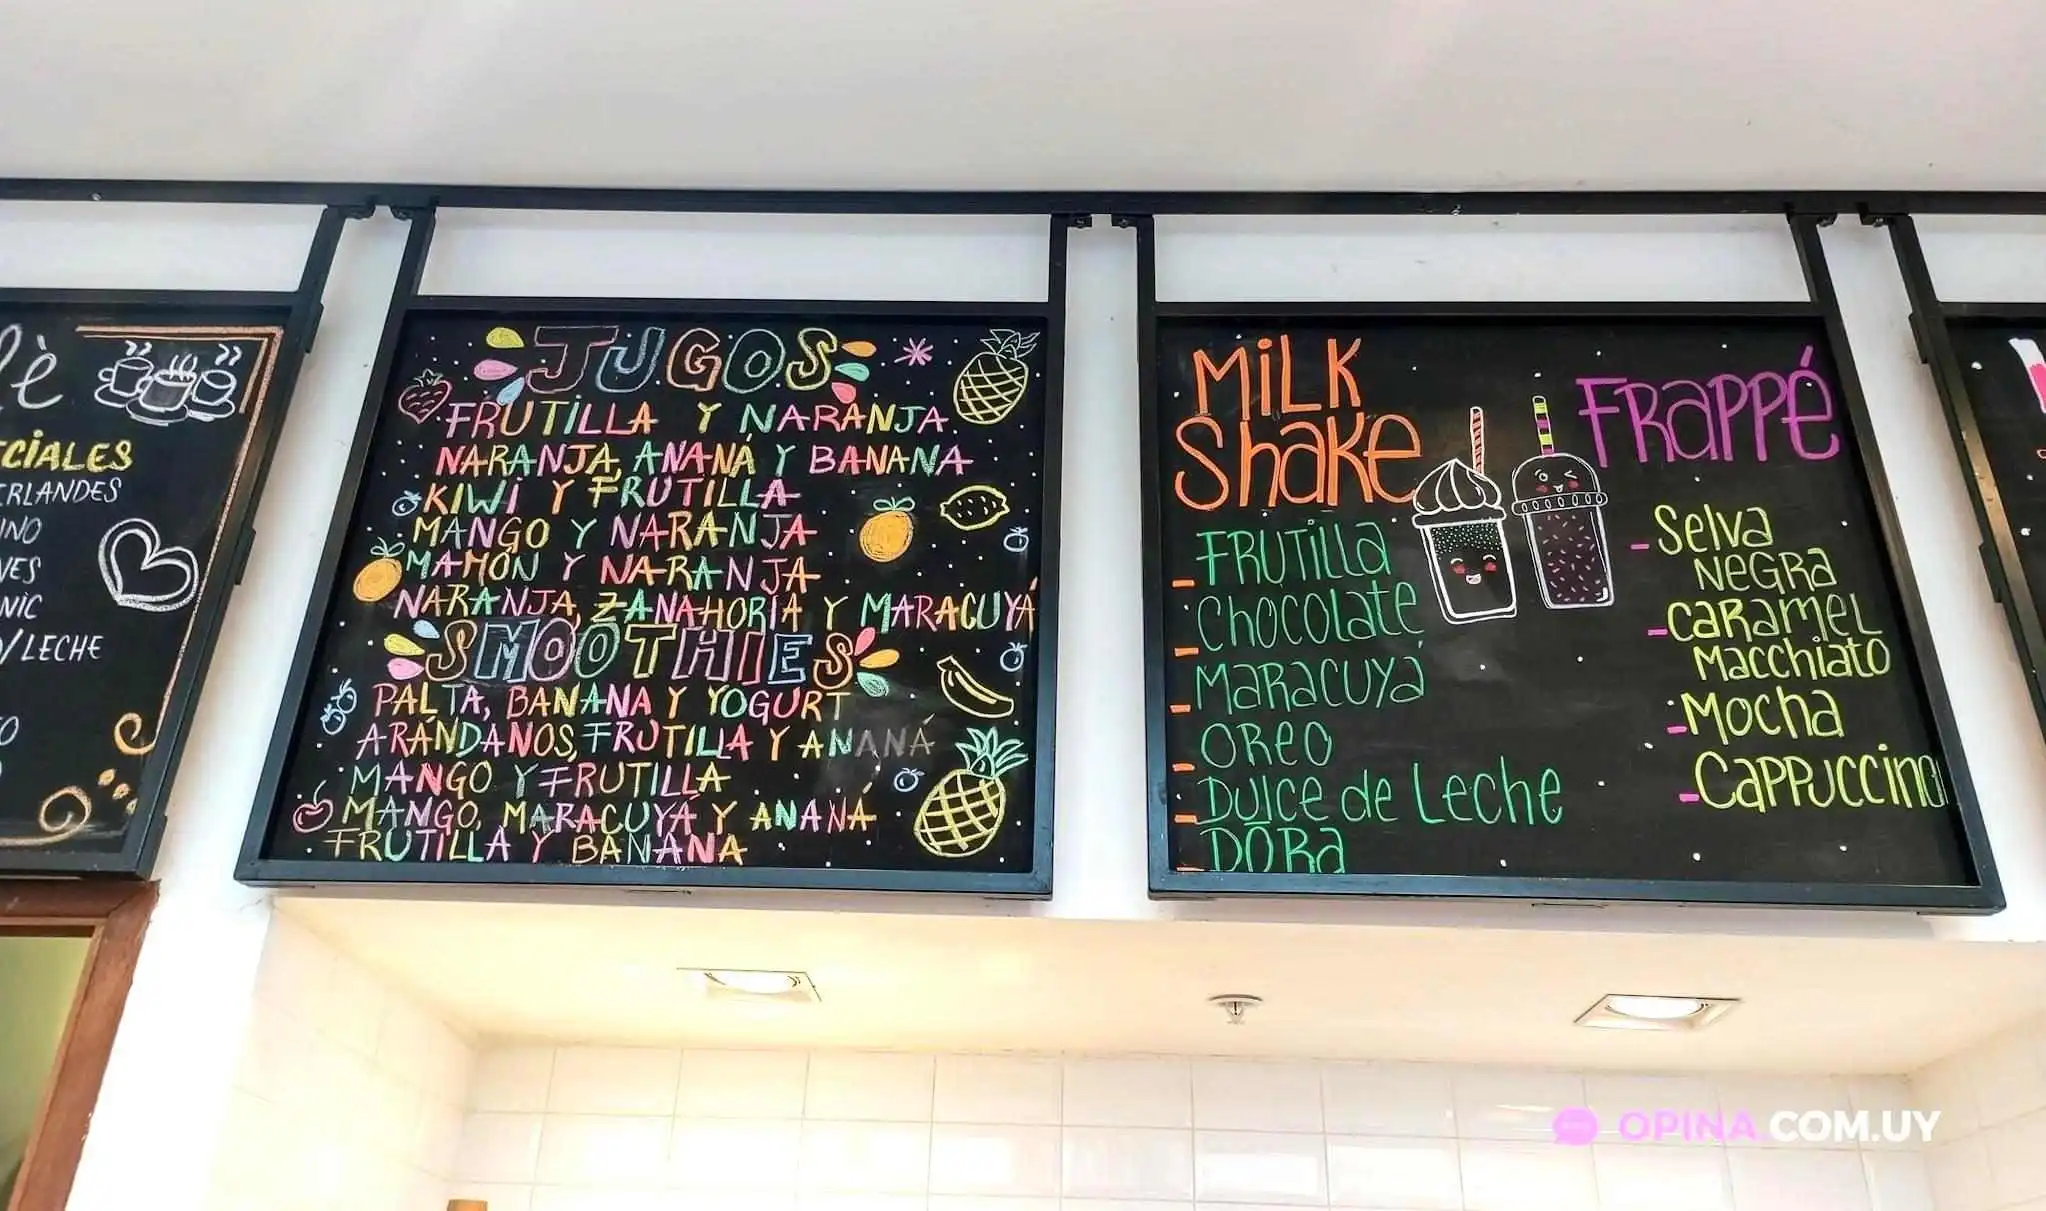 CIALES
ERLANDES
INO
VES
NIC
O/LECHE
JUGOS
FRUTILLA Y NARANJA
NARANJA, ANANÁ Y BANANA
KIWI Y FRUTILLA
MANGO Y NARANJA
MAMÓN Y NARANJA
NARANJA, ZANAHORIA Y MARACUYÁ
SMOOTHIES
PALTA, BANANA Y YOGURT
ARÁNDANOS, FRUTILLA Y ANANÁ
MANGO Y FRUTILLA
MANGO, MARACUYÁ Y ANANÁ
FRUTILLA Y BANANA
MiLK
ShaKe
- FRUTilla
- Chocolate
- Maracuyá
- OReo
- Dulce de Leche
- DÔRa
FRaPPé
- Selva
NeGRa
- caramel
Macchiato
- Mocha
- CaPPuccino
OPINA COM.UY